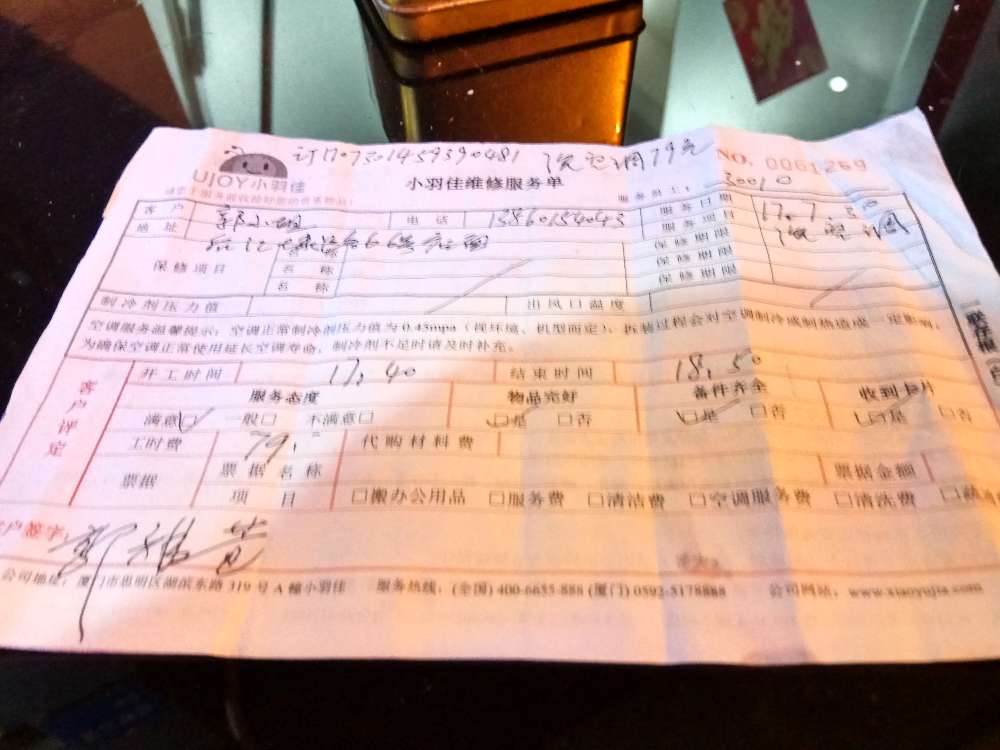 订1707301459390481 洗空调79元 NO. 0061269
UJOY小羽佳 小羽佳维修服务单 服务员工: 30010
客户 郭小姐 电话 13860154043 服务日期 17.7.30
地址 服务项目 洗空调
保修项目 名称 保修期限
名称 保修期限
名称 保修期限
制冷剂压力值 出风口温度
空调服务温馨提示:空调正常制冷剂压力值为0.45mpa(视环境、机型而定),拆装过程会对空调制冷或制热造成一定影响,
为确保空调正常使用延长空调寿命,制冷剂不足时请及时补充。
客户评定 开工时间 17.40 结束时间 18.50
服务态度 物品完好 备件齐全 收到卡片
满意☑ 一般□ 不满意□ ☑是 □否 ☑是 □否 ☑是 □否
工时费 79.- 代购材料费
票据 票据名称 票据金额
项目 □搬办公用品 □服务费 □清洁费 □空调服务费 □清洗费
客户签字:
公司地址:厦门市思明区湖滨东路319号A幢小羽佳 服务热线:(全国)400-6655-888 (厦门)0592-5178888 公司网站:www.xiaoyujia.com